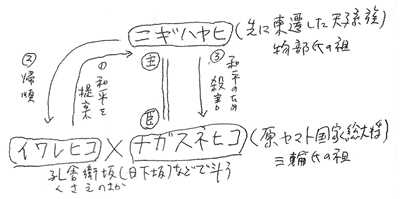 ニギハヤヒ(先に東遷した天孫族)
物部氏の祖
主
②帰順
①和平を
提案
③和平のため
殺害
臣
イワレヒコ×ナガスネヒコ(原ヤマト国家総大将)
三輪氏の祖
孔舎衛坂(日下坂)などで斗う
くさえのさか